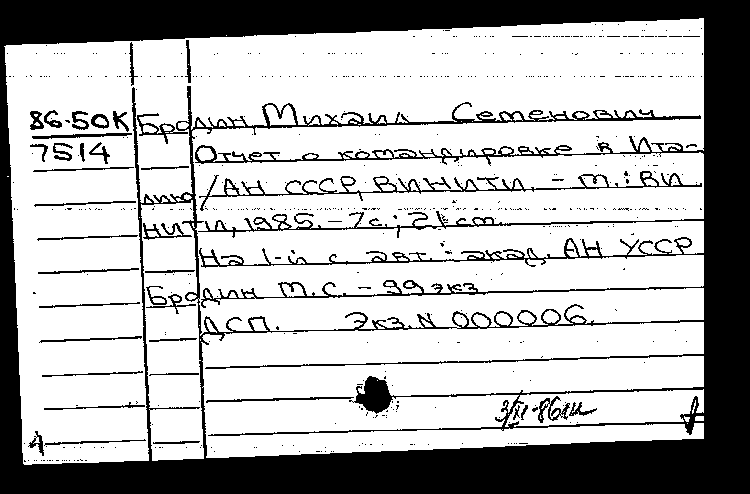 86-50К Бродин, Михаил Семенович
7514 Отчет о командировке в Ита-
лию /АН СССР, ВИНИТИ. - м.: ВИ
НИТИ, 1985. - 7с.; 21 cm.
На 1-й с. авт.: акад. АН УССР
Бродин М.С. - 99 экз
ДСП. Экз. N 000006.
4